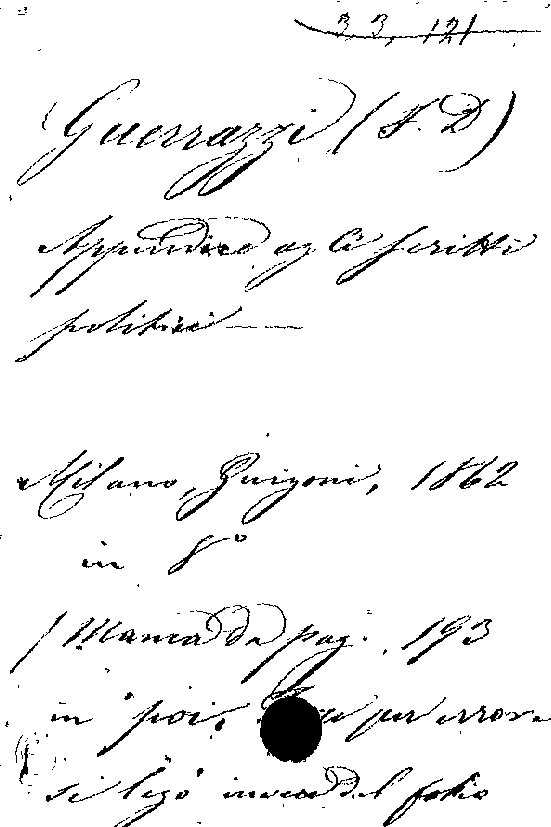 33, 121
Guerrazzi (F. D)
Appendice agli scritti
politici —
Milano, Guigoni, 1862
in 8°
(Manca da pag. 193
in poi, per errore
si legò invece del folio